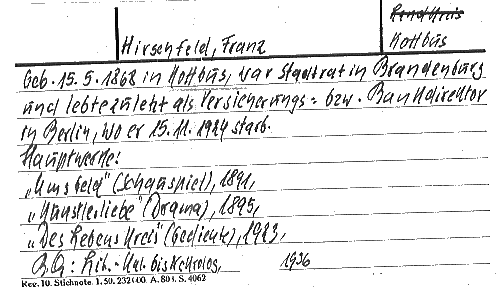 Landkreis
Hirschfeld, Franz Kottbus
Geb. 15.5.1868 in Kottbus, war Stadtrat in Brandenburg
und lebte zuletzt als Versicherungs= bzw. Bankdirektor
in Berlin, wo er 15.11.1924 starb.
Hauptwerke:
„Ums Geld" (Schauspiel), 1891,
„Künstlerliebe" (Drama), 1895,
„Des Lebens Kreis" (Gedichte), 1923,
Lit. bis Nekrolog, 1936
Reg. 10. Stichnote. 1. 50. A. 80 S. 4062